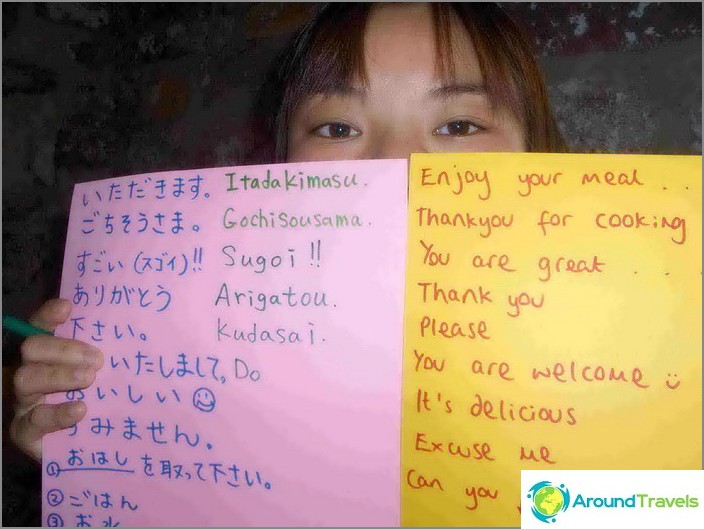 いただきます。 Itadakimasu.
ごちそうさま。 Gochisousama.
すごい (スゴイ)!! Sugoi!!
ありがとう Arigatou.
下さい。 Kudasai.
いたしまして, Do
おいしい
すみません。
① おはし を取って下さい。
② ごはん
③ お水
Enjoy your meal . .
Thankyou for cooking
You are great . .
Thank you
Please
You are welcome
It's delicious
Excuse me
Can you
AroundTravels